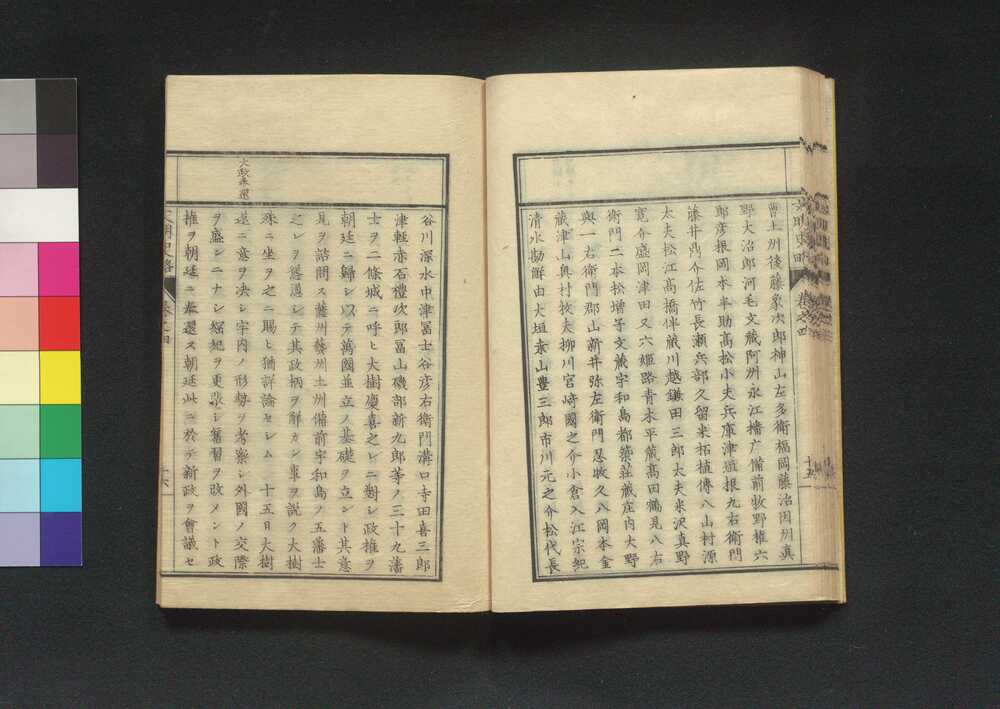 曹土州後藤象次郎神山左多衛福岡藤治因州真
野大治郎河毛文蔵阿洲永江檣广備前牧野權六
郎彦根岡本半助髙松小夫兵庫津殖根九右衛門
藤井鼎介佐竹長瀬兵部久留米柘植傳八山村源
太夫松江髙橋伴蔵川越鎌田三郎太夫米沢真野
寛介盛岡津田又六姫路青木平蔵髙田鶴見八右
衛門二本松増子文蔵宇和島都築荘蔵庄内大野
與一右衛門郡山新井弥左衛門忍牧久八岡本金
蔵津山奥村牧夫柳川宮崎國之介小倉入江宗紀
清水勘解由大垣桒山豊三郎市川元之介松代長
谷川深水中津冨士谷彦右衛門溝口寺田喜三郎
津軽赤石禮次郎冨山磯部新九郎等ノ三十九藩
士ヲ二條城ニ呼ヒ大樹慶喜之レニ對シ政権ヲ
朝廷ニ歸シ以テ萬國並立ノ基礎ヲ立ント其意
見ヲ諮問ス薩州藝州土州備前宇和島ノ五藩士
之レヲ慫慂シテ其政柄ヲ解カン事ヲ説ク大樹
席ニ坐ヲ之ニ賜ヒ猶詳論セシム 十五日大樹
遂ニ意ヲ决シ宇内ノ形勢ヲ考察シ外國ノ交際
ヲ盛シニナシ綱紀ヲ更張シ舊習ヲ改メント政
権ヲ朝廷ニ奉還ス朝廷此ニ於テ新政ヲ會議セ
大政奉還
巻之四
十六